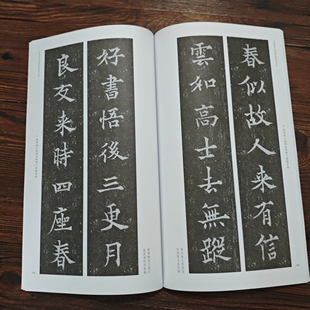 春似故人来有信
雲如高士去無蹤
好書悟後三更月
良友来時四座春